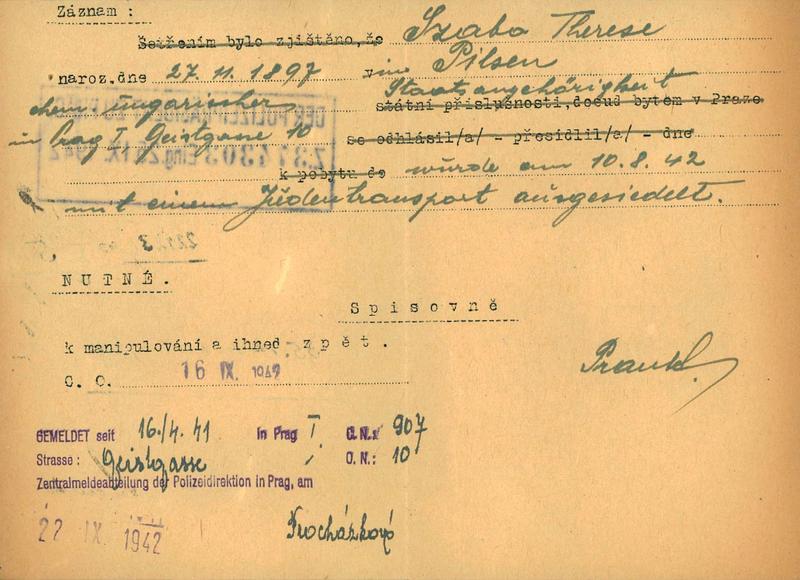 Záznam :
Šetřením bylo zjištěno, že Szabo Therese
naroz. dne 27. 11. 1897 v Pilsen
Staatsangehörigkeit
ungarischer státní příslušnosti, dosud bytem v Praze
in Prag I, Geistgasse 10 se odhlásil/a/ - přesídlil/a/ - dne
k pobytu do wurde am 10. 8. 42
mit einem Judentransport ausgesiedelt.
NUTNÉ.
Spisovně
k manipulování a ihned zpět.
16 IX. 1942
GEMELDET seit 16./4. 41 in Prag I C.N.: 907
Strasse : Geistgasse O.N.: 10
Zentralmeldeabteilung der Polizeidirektion in Prag, am
22 IX 1942 Procházková